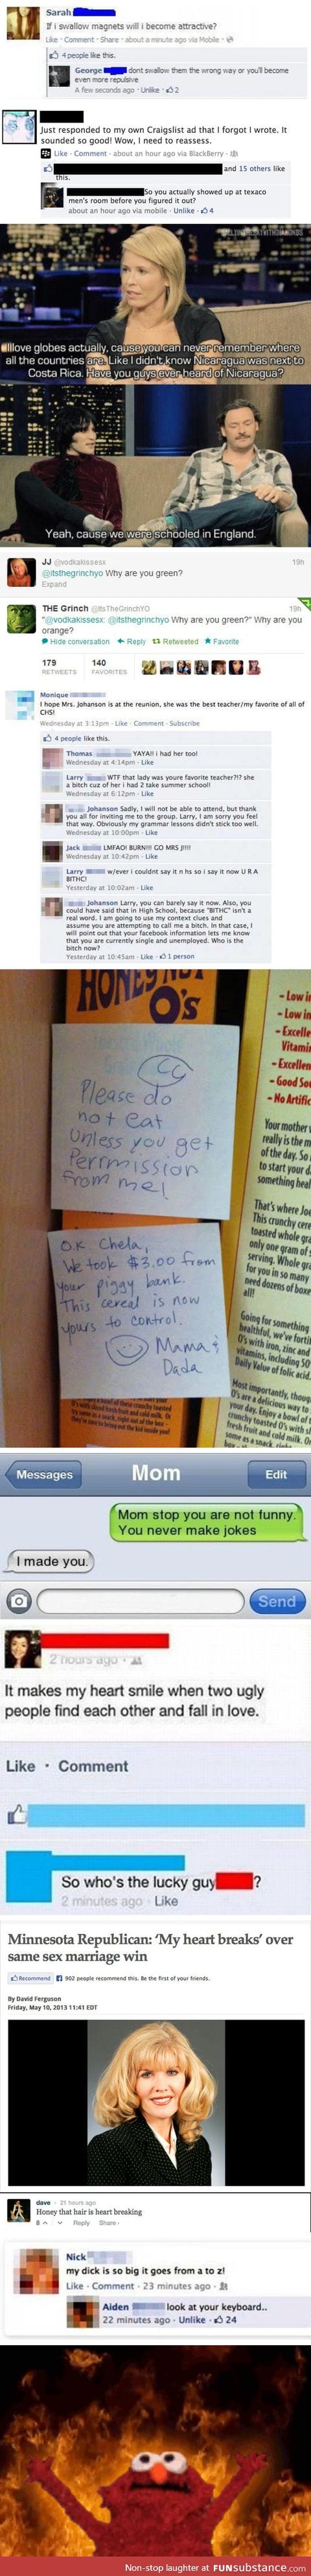 Sarah
If i swallow magnets will i become attractive?
Like · Comment · Share · about a minute ago via Mobile ·
4 people like this.
George dont swallow them the wrong way or you'll become
even more repulsive
A few seconds ago · Unlike · 2
Just responded to my own Craigslist ad that I forgot I wrote. It
sounded so good! Wow, I need to reassess.
Like · Comment · about an hour ago via BlackBerry ·
and 15 others like
this.
So you actually showed up at texaco
men's room before you figured it out?
about an hour ago via mobile · Unlike · 4
I love globes actually, cause you can never remember where
all the countries are. Like I didn't know Nicaragua was next to
Costa Rica. Have you guys ever heard of Nicaragua?
Yeah, cause we were schooled in England.
JJ @vodkakissesx 19h
@itsthegrinchyo Why are you green?
Expand
THE Grinch @ItsTheGrinchYO 19h
"@vodkakissesx: @itsthegrinchyo Why are you green?" Why are you
orange?
Hide conversation Reply Retweeted Favorite
179 140
RETWEETS FAVORITES
Monique
I hope Mrs. Johanson is at the reunion, she was the best teacher/my favorite of all of
CHS!
Wednesday at 3:13pm · Like · Comment · Subscribe
4 people like this.
Thomas YAYA!! i had her too!
Wednesday at 4:14pm · Like
Larry WTF that lady was youre favorite teacher?!? she
a bitch cuz of her i had 2 take summer school!
Wednesday at 6:12pm · Like
Johanson Sadly, I will not be able to attend, but thank
you all for inviting me to the group. Larry, I am sorry you feel
that way. Obviously my grammar lessons didn't stick too well.
Wednesday at 10:00pm · Like
Jack LMFAO! BURN!!! GO MRS J!!!!
Wednesday at 10:42pm · Like
Larry w/ever i couldnt say it n hs so i say it now U R A
BITHC!
Yesterday at 10:02am · Like
Johanson Larry, you can barely say it now. Also, you
could have said that in High School, because "BITHC" isn't a
real word. I am going to use my context clues and
assume you are attempting to call me a bitch. In that case, I
will point out that your facebook information lets me know
that you are currently single and unemployed. Who is the
bitch now?
Yesterday at 10:45am · Like · 1 person
O's
Please do
not eat
Unless you get
Perrmission
from me!
O.K Chela,
We took $3.00 from
your piggy bank.
This cereal is now
yours to control.
Mama &
Dada
- Low
- Low
- Excelle
Vitami
- Excellen
- Good So
- No Artific
Your mother
really is the m
of the day. So
to start your d
something hea
That's where Joe
This crunchy cere
toasted whole gra
only one gram of
serving. Whole gra
for you in so many
need dozens of boxe
all!
Going for something
healthful, we've forti
O's with iron, zinc and
vitamins, including 50
Daily Value of folic acid.
Most importantly, thou
O's are a delicious way to
your day. Enjoy a bowl of
crunchy toasted O's with s
fresh fruit and cold milk. O
some as a snack, right
Messages Mom Edit
Mom stop you are not funny.
You never make jokes
I made you.
Send
2 hours ago ·
It makes my heart smile when two ugly
people find each other and fall in love.
Like · Comment
So who's the lucky guy ?
2 minutes ago · Like
Minnesota Republican: 'My heart breaks' over
same sex marriage win
Recommend 902 people recommend this. Be the first of your friends.
By David Ferguson
Friday, May 10, 2013 11:41 EDT
dave · 21 hours ago
Honey that hair is heart breaking
8 Reply Share ›
Nick
my dick is so big it goes from a to z!
Like · Comment · 23 minutes ago ·
Aiden look at your keyboard..
22 minutes ago · Unlike · 24
Non-stop laughter at FUNsubstance.com